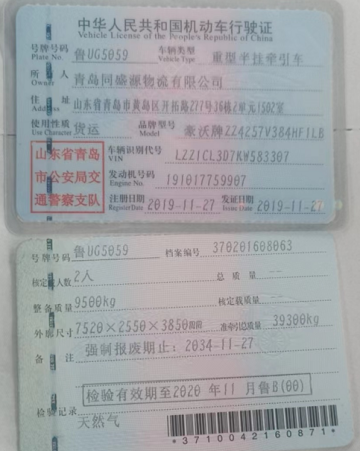 中华人民共和国机动车行驶证
Vehicle License of the People's Republic of China
号牌号码 鲁UG5059 车辆类型 重型半挂牵引车
Plate No. Vehicle Type
所有人 青岛同盛源物流有限公司
Owner
住址 山东省青岛市黄岛区开拓路277号36栋2单元1502室
Address
使用性质 货运 品牌型号 豪沃牌ZZ4257V384HF1LB
Use Character Model
山东省青岛
市公安局交
通警察支队
车辆识别代号 LZZ1CL3D7KW583307
VIN
发动机号码 191017759907
Engine No.
注册日期 2019-11-27 发证日期 2019-11-27
Register Date Issue Date
号牌号码 鲁UG5059 档案编号 370201608063
核定载人数 2人 总质量 --
整备质量 9500kg 核定载质量 --
外廓尺寸 7520×2550×3850mm 准牵引总质量 39300kg
备注 强制报废期止: 2034-11-27
检验有效期至2020年11月鲁B(00)
检验记录
天然气
*3710042160871*